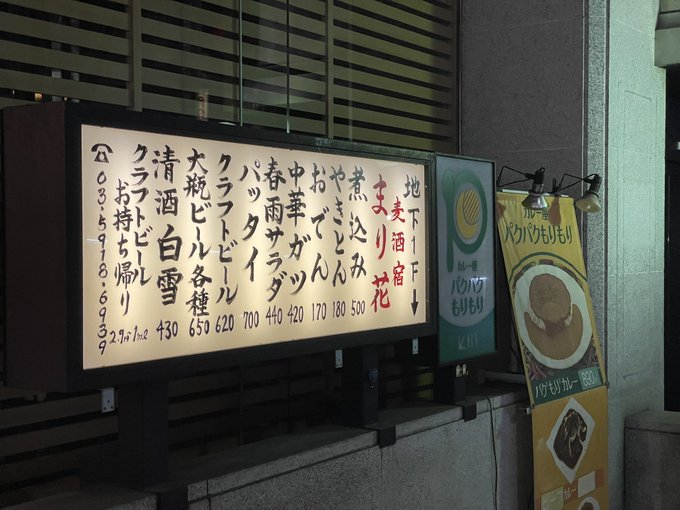 地下1F↓
麦酒宿
まり花
煮込み 500
やきとん 180
おでん 170
中華ガツ 420
春雨サラダ 440
パッタイ 700
クラフトビール 620
大瓶ビール各種 650
清酒 白雪 430
クラフトビール
お持ち帰り 2.9円/1ml
☎03-5918-6939
カレー屋
パクパク
もりもり
カレー屋
パクパクもりもり
パクもりカレー 690